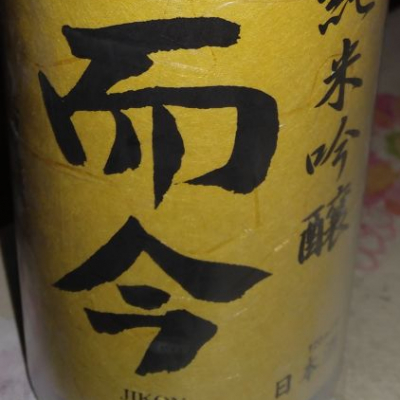 而今
純米吟醸
JIKON
日本